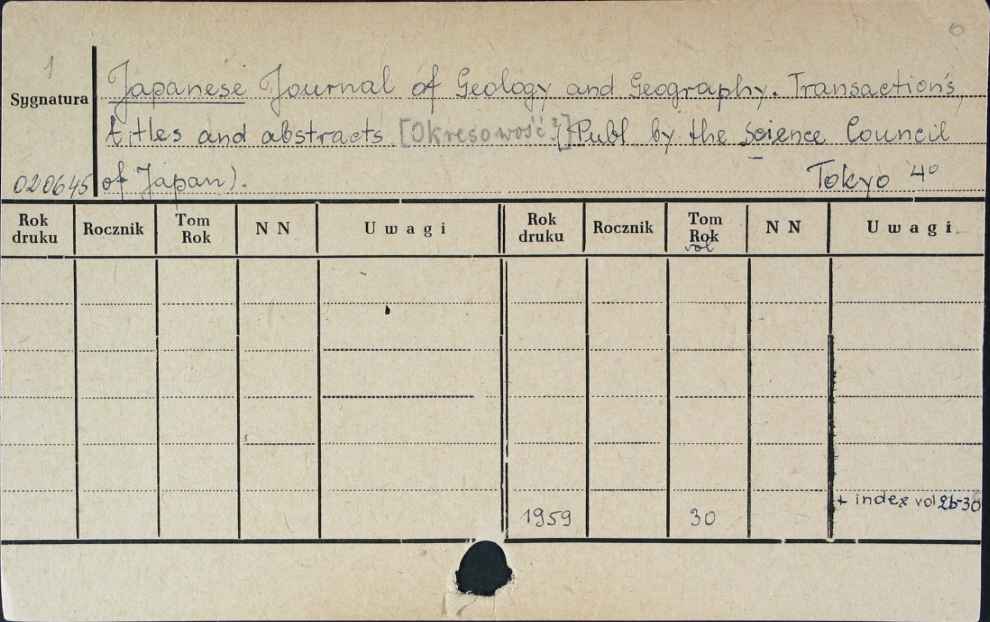 6
1
Sygnatura
Japanese Journal of Geology and Geography. Transactions,
titles and abstracts [Okresowość?] (Publ. by the Science Council
020645 of Japan). Tokyo 4°
Rok druku Rocznik Tom Rok N N Uwagi Rok druku Rocznik Tom Rok vol N N Uwagi
1959 30 + index vol 26-30